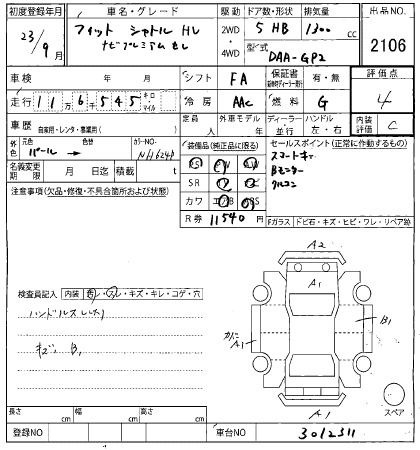 初度登録年月 車名・グレード 駆動 ドア数・形状 排気量 出品NO.
23/9月 フィット シャトル HV 2WD 5 HB 1300 cc 2106
ナビプレミアムセレ ・4WD 型式 DAA-GP2
車検 年 月 シフト FA 保証書 有・無 評価点
走行 11万6千545 キロ・マイル 冷房 AAC 燃料 G 4
車歴 自家用・レンタ・事業用( ) 定員 人 外車モデル 年 ディーラー・並行 ハンドル 左・右 内装評価 C
外色 元色 パール → 色替 カラーNO. NH624P 装備品(純正品に限る) セールスポイント(正常に作動するもの)
名義変更期限 月 日迄 積載 t SR スマートキー
注意事項(欠品・修復・不具合箇所および状態) カワ ABS Bモニター
R券 11540 円 クルコン
Fガラス ドビ石・キズ・ヒビ・ワレ・リペア跡
検査員記入 内装
ハンドルスレ
キズ B1
A2
A1
B1
A1
A1
スペア
長さ cm 幅 cm 高さ cm
登録NO 車台NO 3012311